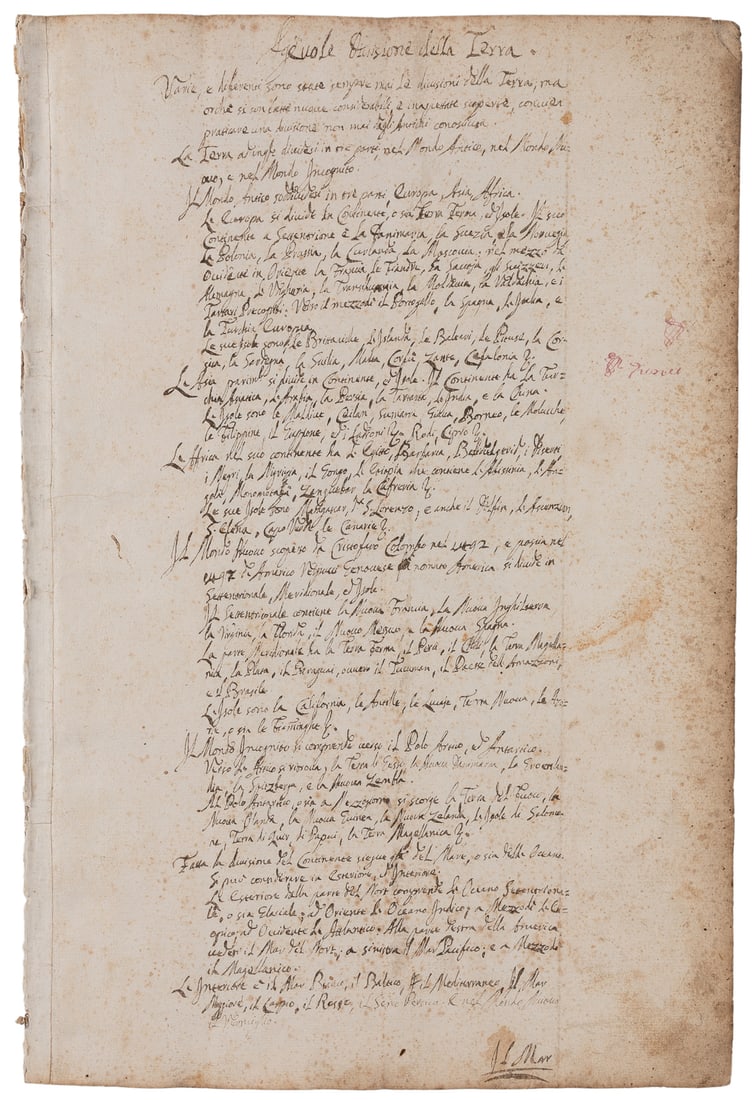 Ageuole diuisione della Terra.
Varie, e differenti sono state sempre mai le diuisioni della Terra; ma
orche si son fatte nuoue considerabili, e inaspettate scoperte, conuien
praticare una diuisione non mai dagli Antichi conosciuta.
La Terra adunque diuidesi in tre parti, nel Mondo Antico, nel Mondo Nu-
ouo, e nel Mondo Incognito.
Il Mondo Antico suddiuidesi in tre parti, Europa, Asia, Africa.
Le Europa si diuide in Continente, o sia Terra Ferma, ed Isole. Il suo
Continente a Settentrione è La Danimarca, la Suezia, e la Noruegia
La Polonia, la Prussia, la Curlanda, la Moscouia: nel mezzo da
Occidente in Oriente la Francia, le Fiandre, la Sauoja, gli Suizzeri, l'
Alemagna, l'Vngheria, la Transiluania, la Moldauia, la Valachia, e i
Tartari Precopiti: Verso il mezzodì il Portogallo, la Spagna, l'Italia, e
la Turchia Europea.
Le sue Isole sono le Britaniche, l'Islanda, le Baleari, le Pitiuse, la Cor-
sica, la Sardegna, la Sicilia, Malta, Corfù, Zante, Cefalonia &.
Le Asia parimente si diuide in Continente, ed Isole. Il Continente ha la Tur-
chia Asiatica, l'Arabia, la Persia, la Tartaria, l'India, e la China.
Le Isole sono le Maldiue, Ceilan, Sumatra, Giaua, Borneo, le Molucche,
le Filippine, il Giappone, e i Ladroni &. Rodi, Cipro &.
Le Africa nel suo continente ha l'Egitto, Barbaria, i Deserti,
i Negri, la Nigrizia, il Gongo, l'Etiopia che contiene l'Abissinia, l'An-
gola, Monomotapa, Zanguebar, la Cafreria &.
Le sue Isole sono Madagascar, S. Lorenzo; e anche il Delfin, l'Ascenzion,
S. Elena, Capo Verde, le Canarie &.
Il Mondo Nuouo scoperto da Cristofaro Colombo nel 1492, e poscia nel
1497 da Americo Vespucci Genouese nomato America si diuide in
Settentrionale, Meridionale, ed Isole.
Il Settentrionale contiene la Nuoua Francia, la Nuoua Inghilterra
la Virginia, la Florida, il Nuouo Messico, e la Nuoua Spagna.
La parte Meridionale ha la Terra Ferma, il Perù, il Chili, la Terra Magella-
nica, la Plata, il Paraguai, ouuero il Tucuman, il Paese dell'Amazzoni,
e il Brasile
Le Isole sono la California, le Antille, le Lucaje, Terra Nuoua, le Azo-
re, o sia le Fiaminghe &.
Il Mondo Incognito si comprende uerso il Polo Artico, ed Antartico.
Verso l'Artico si ritroua, la Terra di Jesso, la Nuoua Danimarca, la Groenlan-
dia, la Spizberga, e la Nuoua Zembla.
Al Polo Antartico, o sia a Mezzogiorno si scorge la Terra del Fuoco, la
Nuoua Olanda, la Nuoua Guinea, la Nuoua Zelanda, l'Isole di Salomo-
ne, Terra di Quir, di Papui, la Terra Magellanica &.
Fatta la diuisione del Continente siegue del Mare, o sia dello Oceano.
Si può considerare in Esteriore, ed Interiore.
Le Esteriore dalla parte del Nort comprende l'Oceano Settentriona-
le, o sia Glaciale; ad Oriente l'Oceano Indico; a Mezzodì l'E-
opico; ad Occidente l'Atlantico. Alla parte destra della America
uedesi il Mar del Nort; a sinistra il Mar Pacifico; e a Mezzodì
il Magellanico.
Le Interiore è il Mar Bianco, il Baltico, il Mediterraneo, Il Mar
Maggiore, il Caspio, il Rosso, il Seno Persico. E nel Mondo Nuouo
Il Mar